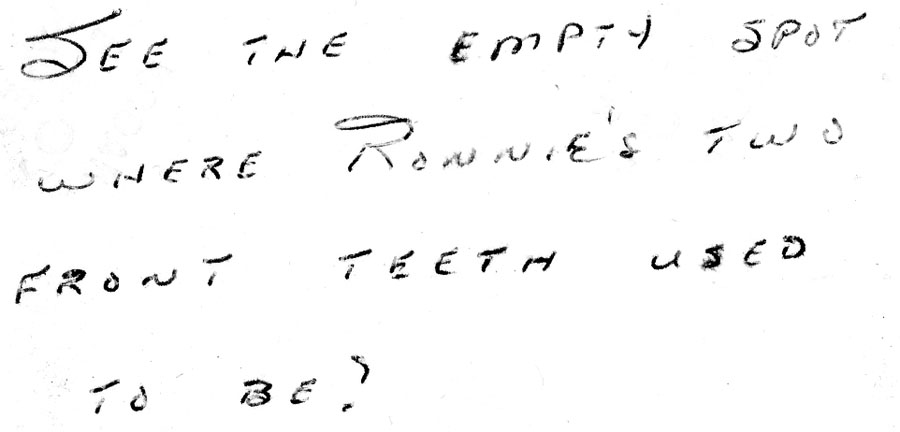 SEE THE EMPTY SPOT
WHERE RONNIE'S TWO
FRONT TEETH USED
TO BE?